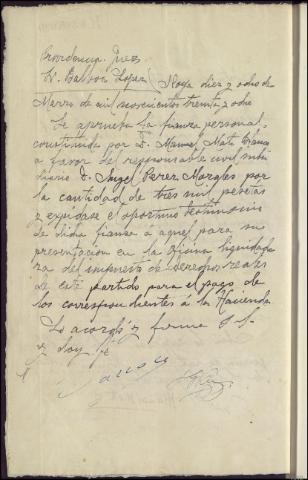 Providencia Juez
Sr. Balboa Lopez Noya diez y ocho de
Marzo de mil novecientos treinta y ocho
Se aprueba la fianza personal
constituida por D. Manuel Mato Blanco
a favor del responsable civil subsi
diario D. Angel Perez Margés por
la cantidad de tres mil pesetas
y expidase el oportuno testimonio
de dicha fianza á aquel para su
presentacion en la Oficina liquidado
ra del impuesto de derechos reales
de esté partido para el pago de
los correspondientes á la Hacienda
Lo acordó y firma S. S.
y doy fé